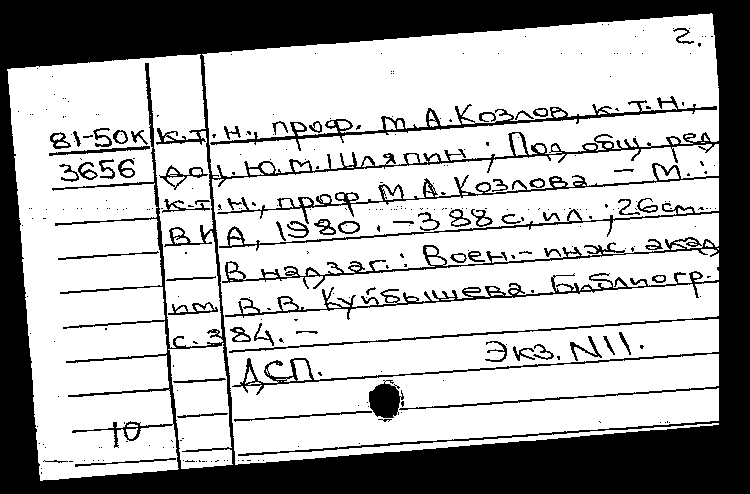 2.
81-50к к.т.н., проф. М.А.Козлов, к.т.н.,
3656 доц. Ю.М.Шляпин ; Под общ. ред
к.т.н., проф. М.А.Козлова. - М. :
ВИА, 1980. - 388 с., ил. ; 26 см.
В надзаг.: Воен.-инж. акад
им. В.В. Куйбышева. Библиогр.:
с. 384. -
ДСП. Экз. N11.
10